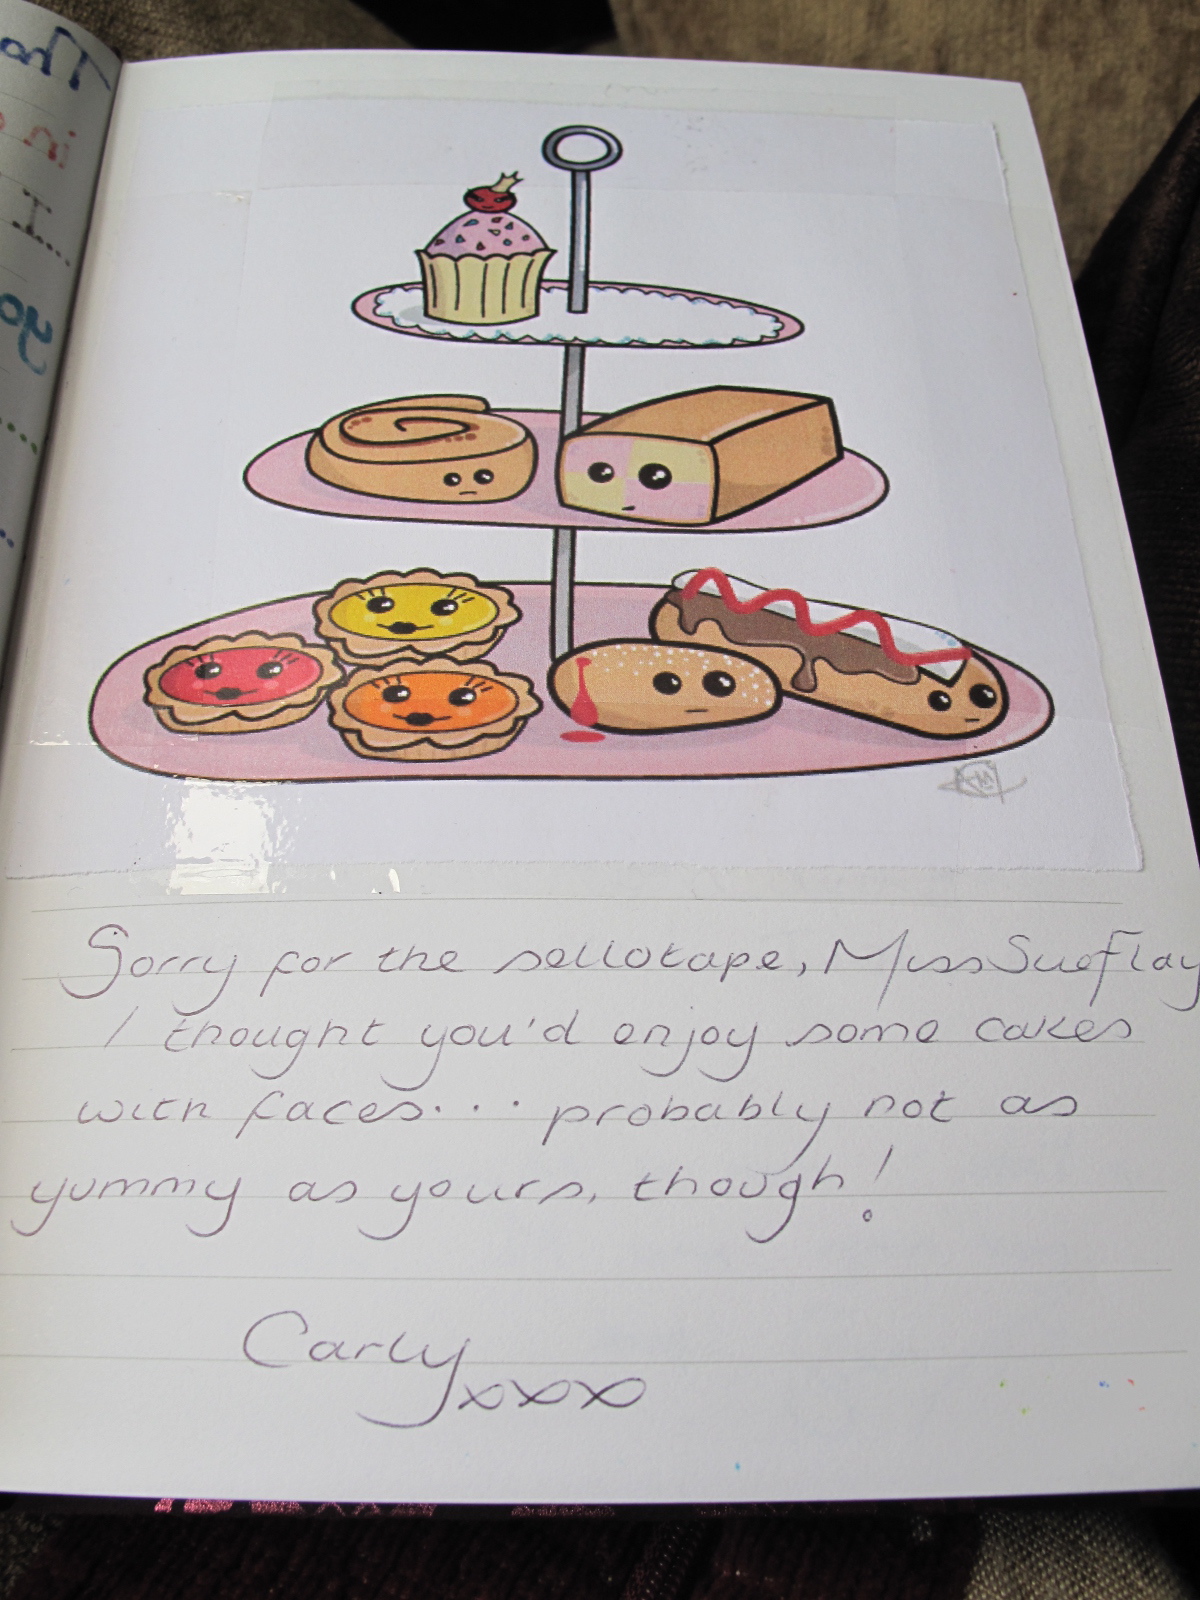 Tha
in
I
yo
Sorry for the sellotape, Miss Sue Flay
I thought you'd enjoy some cakes
with faces... probably not as
yummy as yours, though!
Carly xxx